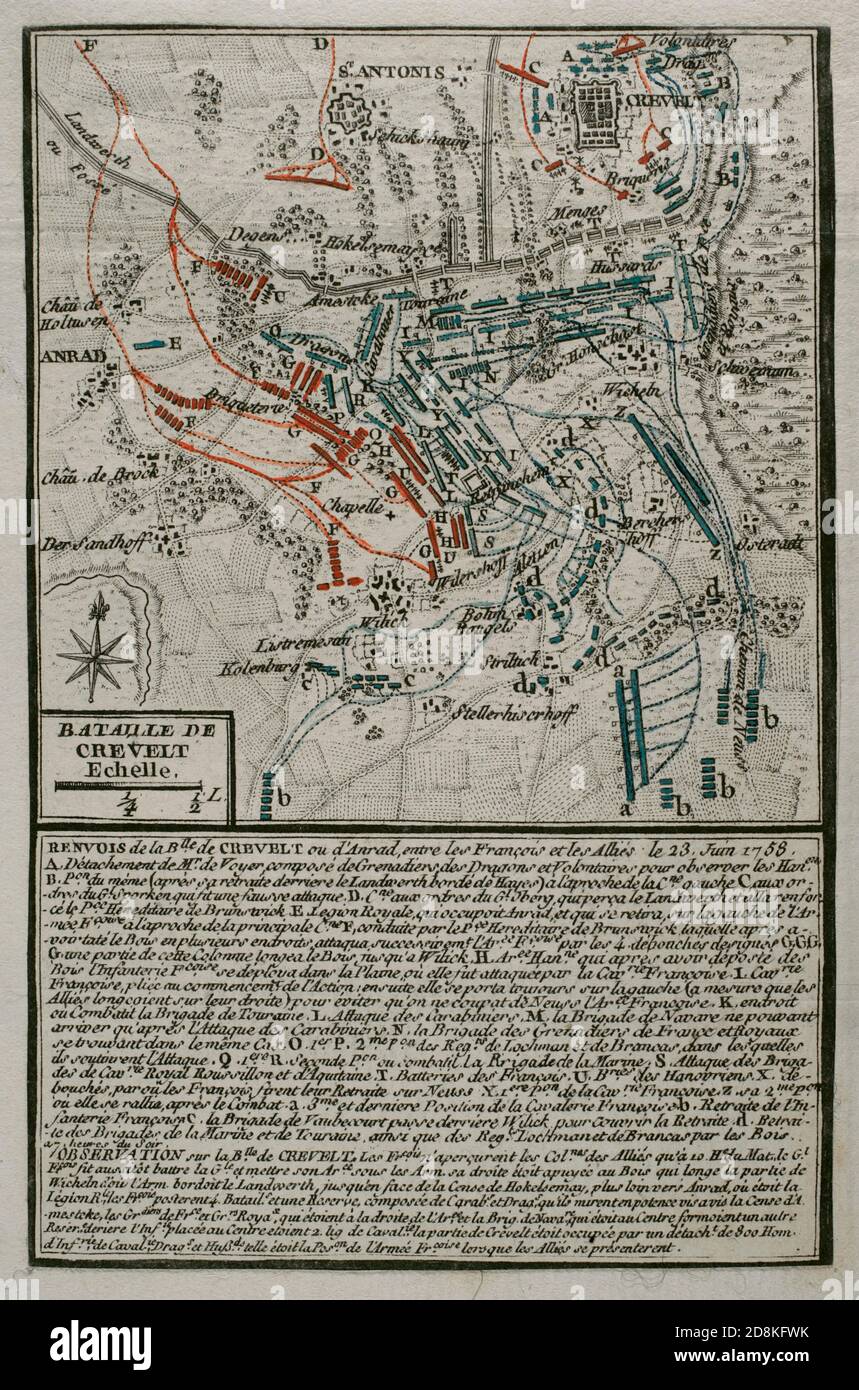 F
D
St. ANTONIS
Volontaires
Drag.
A
B
C
CREVELT
Landwerth
ou Fosse
Schickshaum
D
C
Briqueries
Menges
Degens
Hokelsemay
Hussards
F
U
Amesteke
Touraine
M
I
Châu. de
Holtusen
E
ANRAD
Dragons
Carabiniers
Gr. Honschuot
Schweinum
Wicheln
N
Briqueterie
P
R
K
G
Q
H
L
Y
X
Z
d
Châu. de Brock
Chapelle
S
Bercher
hoff
Osteradt
Der Sandhoff
Wilershoff
Wilick
Bohm
Engels
Listremesan
Kolenburg
Striltuch
Chemin de Neuss
Stellerhiserhoff
c
a
b
BATAILLE DE
CREVELT
Echelle.
1/4 1/2 L.
RENVOIS de la Blle de CREVELT ou d'Anrad, entre les François et les Alliés le 23. Juin 1758.
A. Détachement de Mr. de Voyer, composé de Grenadiers, des Dragons et Volontaires pour observer les Hanens
B. Pon du même (après sa retraite derriere le Landwerth bordé de Hayes) à l'aproche de la Cne gauche C aux or-
dres du Gl Sporken qui fit une fausse attaque. D. Cne aux ordres du Gl Oberg, qui perça le Landwerth et alla renfor-
cé le Pce Héréditaire de Brunswick. E. Legion Royale, qui occupoit Anrad, et qui se retira, sur la gauche de l'Ar-
mée Fçoise à l'aproche de la principale Cne F, conduite par le Pce Hereditaire de Brunswick laquelle après a-
voir taté le Bois en plusieurs endroits attaqua successivemt l'Arée Fçoise par les 4 débouchés designés G,G,G,
G. une partie de cette Colonne longea le Bois, jusqu'à Wilick. H. Arée Hanne qui après avoir déposté des
Bois l'Infanterie Fçoise se déploya dans la Plaine, où elle fut attaquée par la Cavrie Françoise. I. Cavrie
Françoise, pliée au commencemt de l'Action; ensuite elle se porta toujours sur la gauche (a mesure que les
Alliés longeoient sur leur droite) pour éviter qu'on ne coupat de Neuss l'Arée Françoise. K. endroit
où Combatit la Brigade de Touraine. L. Attaque des Carabiniers. M. la Brigade de Navare ne pouvant
arriver qu'après l'Attaque des Carabiniers. N. la Brigade des Grenadiers de France et Royaux
se trouvant dans le même Cas. O. 1ere P. 2me pon des Regts de Lochman et de Brancas, dans lesquelles
ils soutinrent l'Attaque. Q. 1ere R. Seconde Pon ou combatit la Brigade de la Marine. S. Attaque des Briga-
des de Cavrie Royal Roussillon et d'Aquitaine. T. Batteries des François. U. Bries des Hanovriens. X. dé-
bouchés, par où les François firent leur Retraite sur Neuss. Y. 1ere pon de la Cavrie Françoise. Z. sa 2me pon
où elle se rallia, après le Combat. a. 3me et derniere Position de la Cavalerie Françoise. b. Retraite de l'In-
fanterie Françoise. c. la Brigade de Vaubecourt passe derriere Wilick, pour Couvrir la Retraite. d. Retrai-
te des Brigades de la Marine et de Touraine, ainsi que des Regts Lochman et de Brancas par les Bois.
heures du Soir.
OBSERVATION sur la Blle de CREVELT. Les Frçois n'aperçurent les Colnes des Alliés qu'à 10. Hes du Mat. le Gl
Fçois fit aussitôt battre la Gle et mettre son Arée sous les Arm. sa droite étoit apuyée au Bois qui longe la partie de
Wicheln d'où l'Arm. bordoit le Landwerth, jusqu'en face de la Cense de Hokelsemay, plus loin vers Anrad, où étoit la
Légion Rle les Fçois posterent 4. Bataill. et une Reserve, composée de Carab. et Drag. qu'ils mirent en potence vis avis la Cense d'A-
mesteke, les Grdiers de Fce et Grs Roya.x, qui étoient à la droite de l'Arée et la Brig. de Navar. qui étoit au Centre formoient un autre
Reser. deriere l'Infrie placée au Centre étoient 2. lig. de Cavalrie la partie de Crevelt étoit occupée par un détacht de 800 Hom.
d'Infrie de Cavalrie Drags et Hußds telle étoit la Poson de l'Armée Frçoise lorsque les Alliés se présenterent.
alamy
Image ID: 2D8KFWK
www.alamy.com